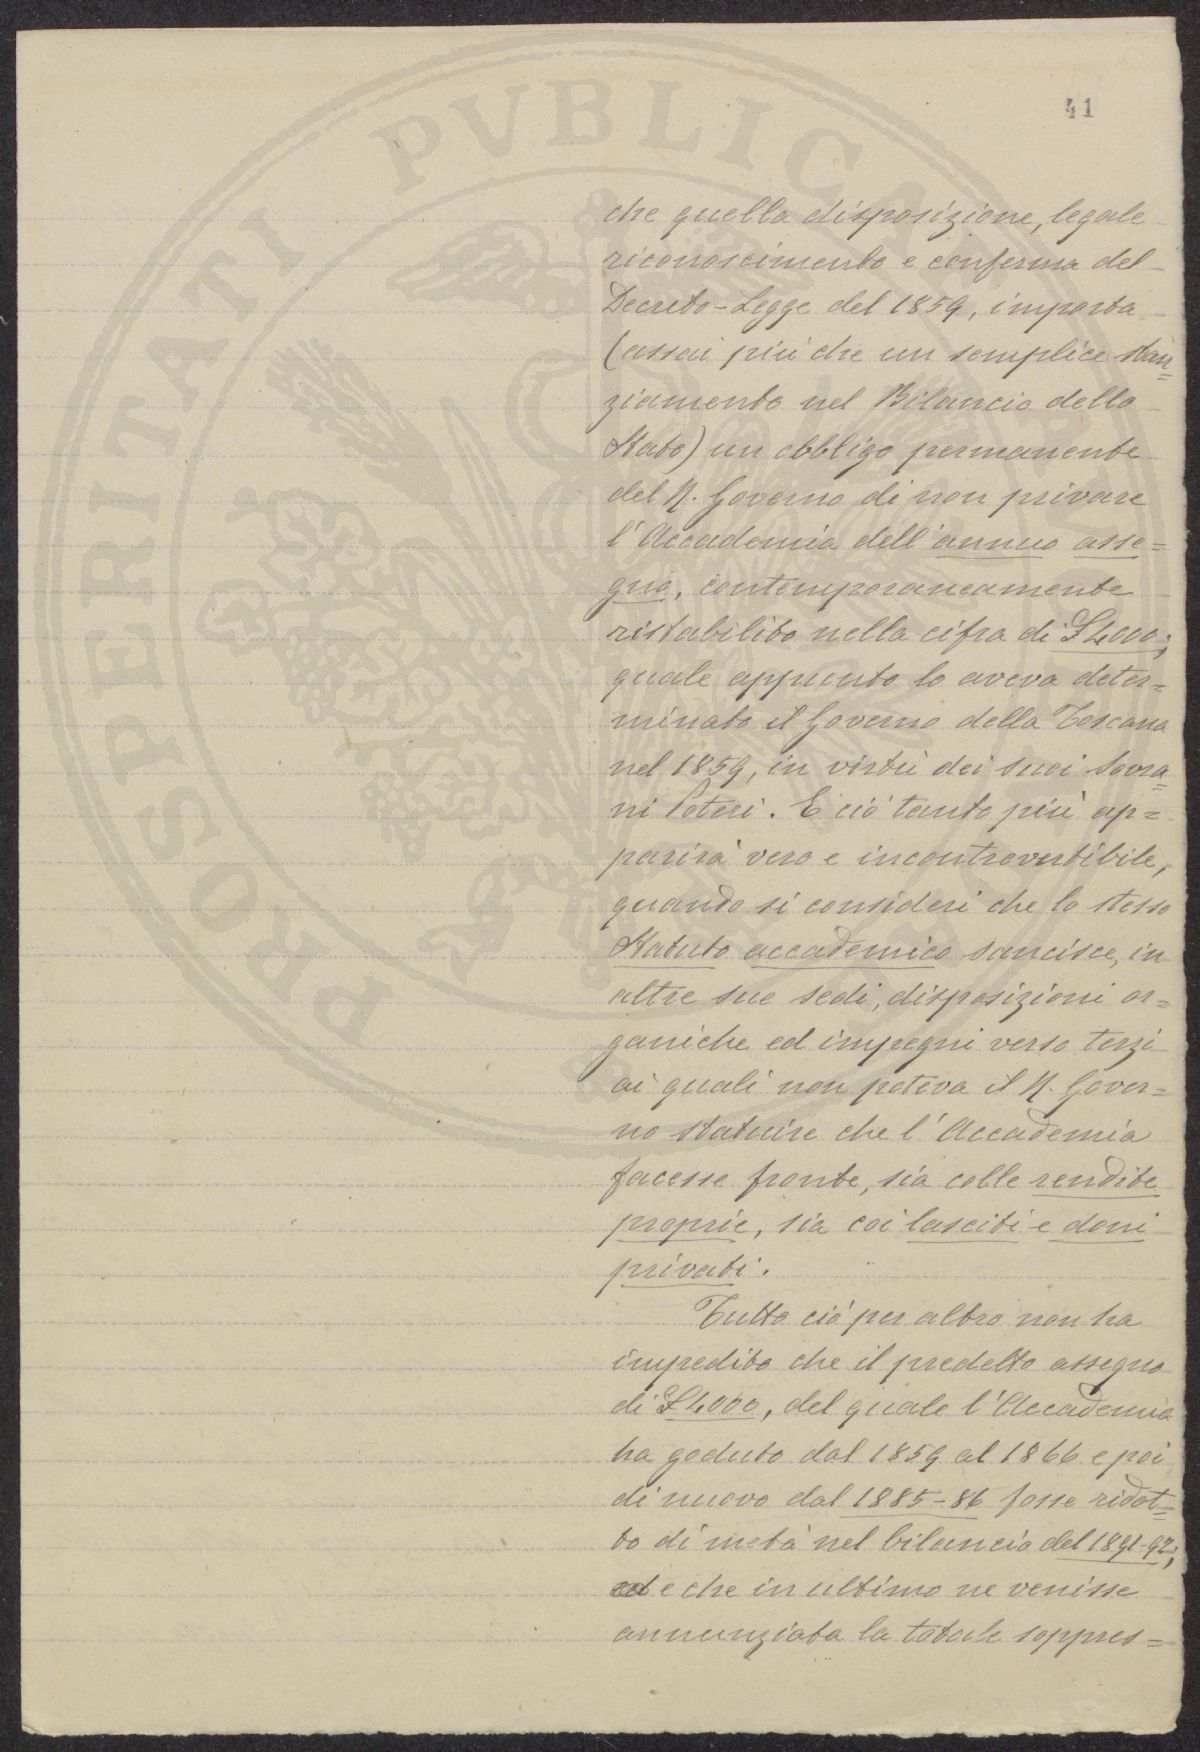 41
PROSPERITATI PVBLICAE
che quella disposizione, legale
riconoscimento e conferma del
Decreto-Legge del 1859, importa
(assai più che un semplice stan=
ziamento nel Bilancio dello
Stato) un obbligo permanente
del R. Governo di non privare
l'Accademia dell'annuo asse=
gno, contemporaneamente
ristabilito nella cifra di £4000;
quale appunto lo aveva deter=
minato il Governo della Toscana
nel 1859, in virtù dei suoi Sovra=
ni Poteri. E ciò tanto più ap=
parirà vero e incontrovertibile,
quando si consideri che lo stesso
Statuto accademico sancisce, in
altre sue sedi, disposizioni or=
ganiche ed impegni verso terzi
ai quali non poteva il R. Gover=
no statuire che l'Accademia
facesse fronte, sia colle rendite
proprie, sia coi lasciti e doni
privati.
Tutto ciò per altro non ha
impedito che il predetto assegno
di £4000, del quale l'Accademia
ha goduto dal 1859 al 1866 e poi
di nuovo dal 1885-86 fosse ridot=
to di metà nel bilancio del 1891-92;
e che in ultimo ne venisse
annunziata la totale soppres=